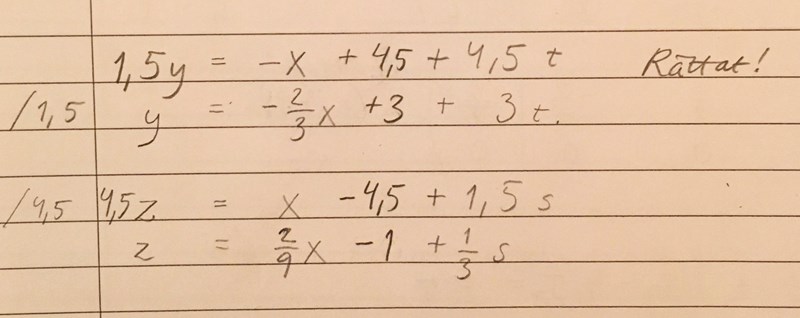 1,5y = -x + 4,5 + 4,5 t Rättat!
/1,5 y = -2/3 x + 3 + 3 t.
/4,5 4,5z = x - 4,5 + 1,5 s
z = 2/9 x - 1 + 1/3 s